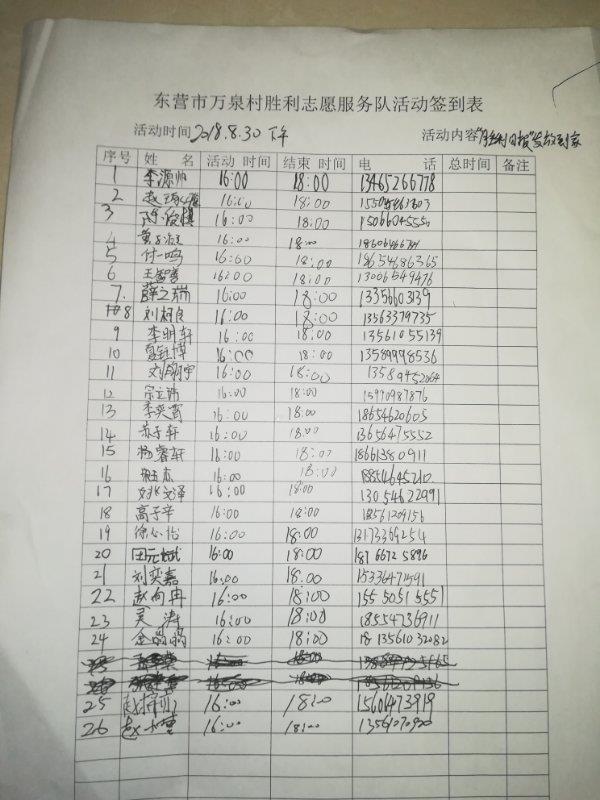 东营市万泉村胜利志愿服务队活动签到表
活动时间2018.8.30下午 活动内容"胜利日报"发放到家
序号 姓 名 活动 时间 结束 时间 电 话 总时间 备注
1 李源帅 16:00 18:00 13465266778
2 赵 16:00 18:00
3 陈俊 16:00 18:00
4 黄 16:00 18:00
5 付一鸣 16:00 18:00 18654686365
6 王 16:00 18:00 13006549476
7. 薛之瑞 16:00 18:00 13356603139
8 刘 16:00 18:00 13563379735
9 李明轩 16:00 18:00 13561055139
10 博 16:00 18:00 13589998536
11 刘翎宇 16:00 18:00
12 宗立 16:00 18:00 15990987876
13 李奕霄 16:00 18:00 18654620605
14 苏子轩 16:00 18:00 13656475552
15 杨睿轩 16:00 18:00 18661380911
16 16:00 18:00 18854645210
17 姚 泽 16:00 18:00 13054622991
18 高子辛 16:00 18:00 18561209156
19 徐心怡 16:00 18:00 13173369254
20 田元斌 16:00 18:00 187 6672 5896
21 刘奕嘉 16:00 18:00 15336471591
22 赵向冉 16:00 18:00 155 5051 5551
23 吴 涛 16:00 18:00 18554736911
24 16:00 18:00 13561032082
25 16:00 18:00 15601473919
26 赵 16:00 18:00